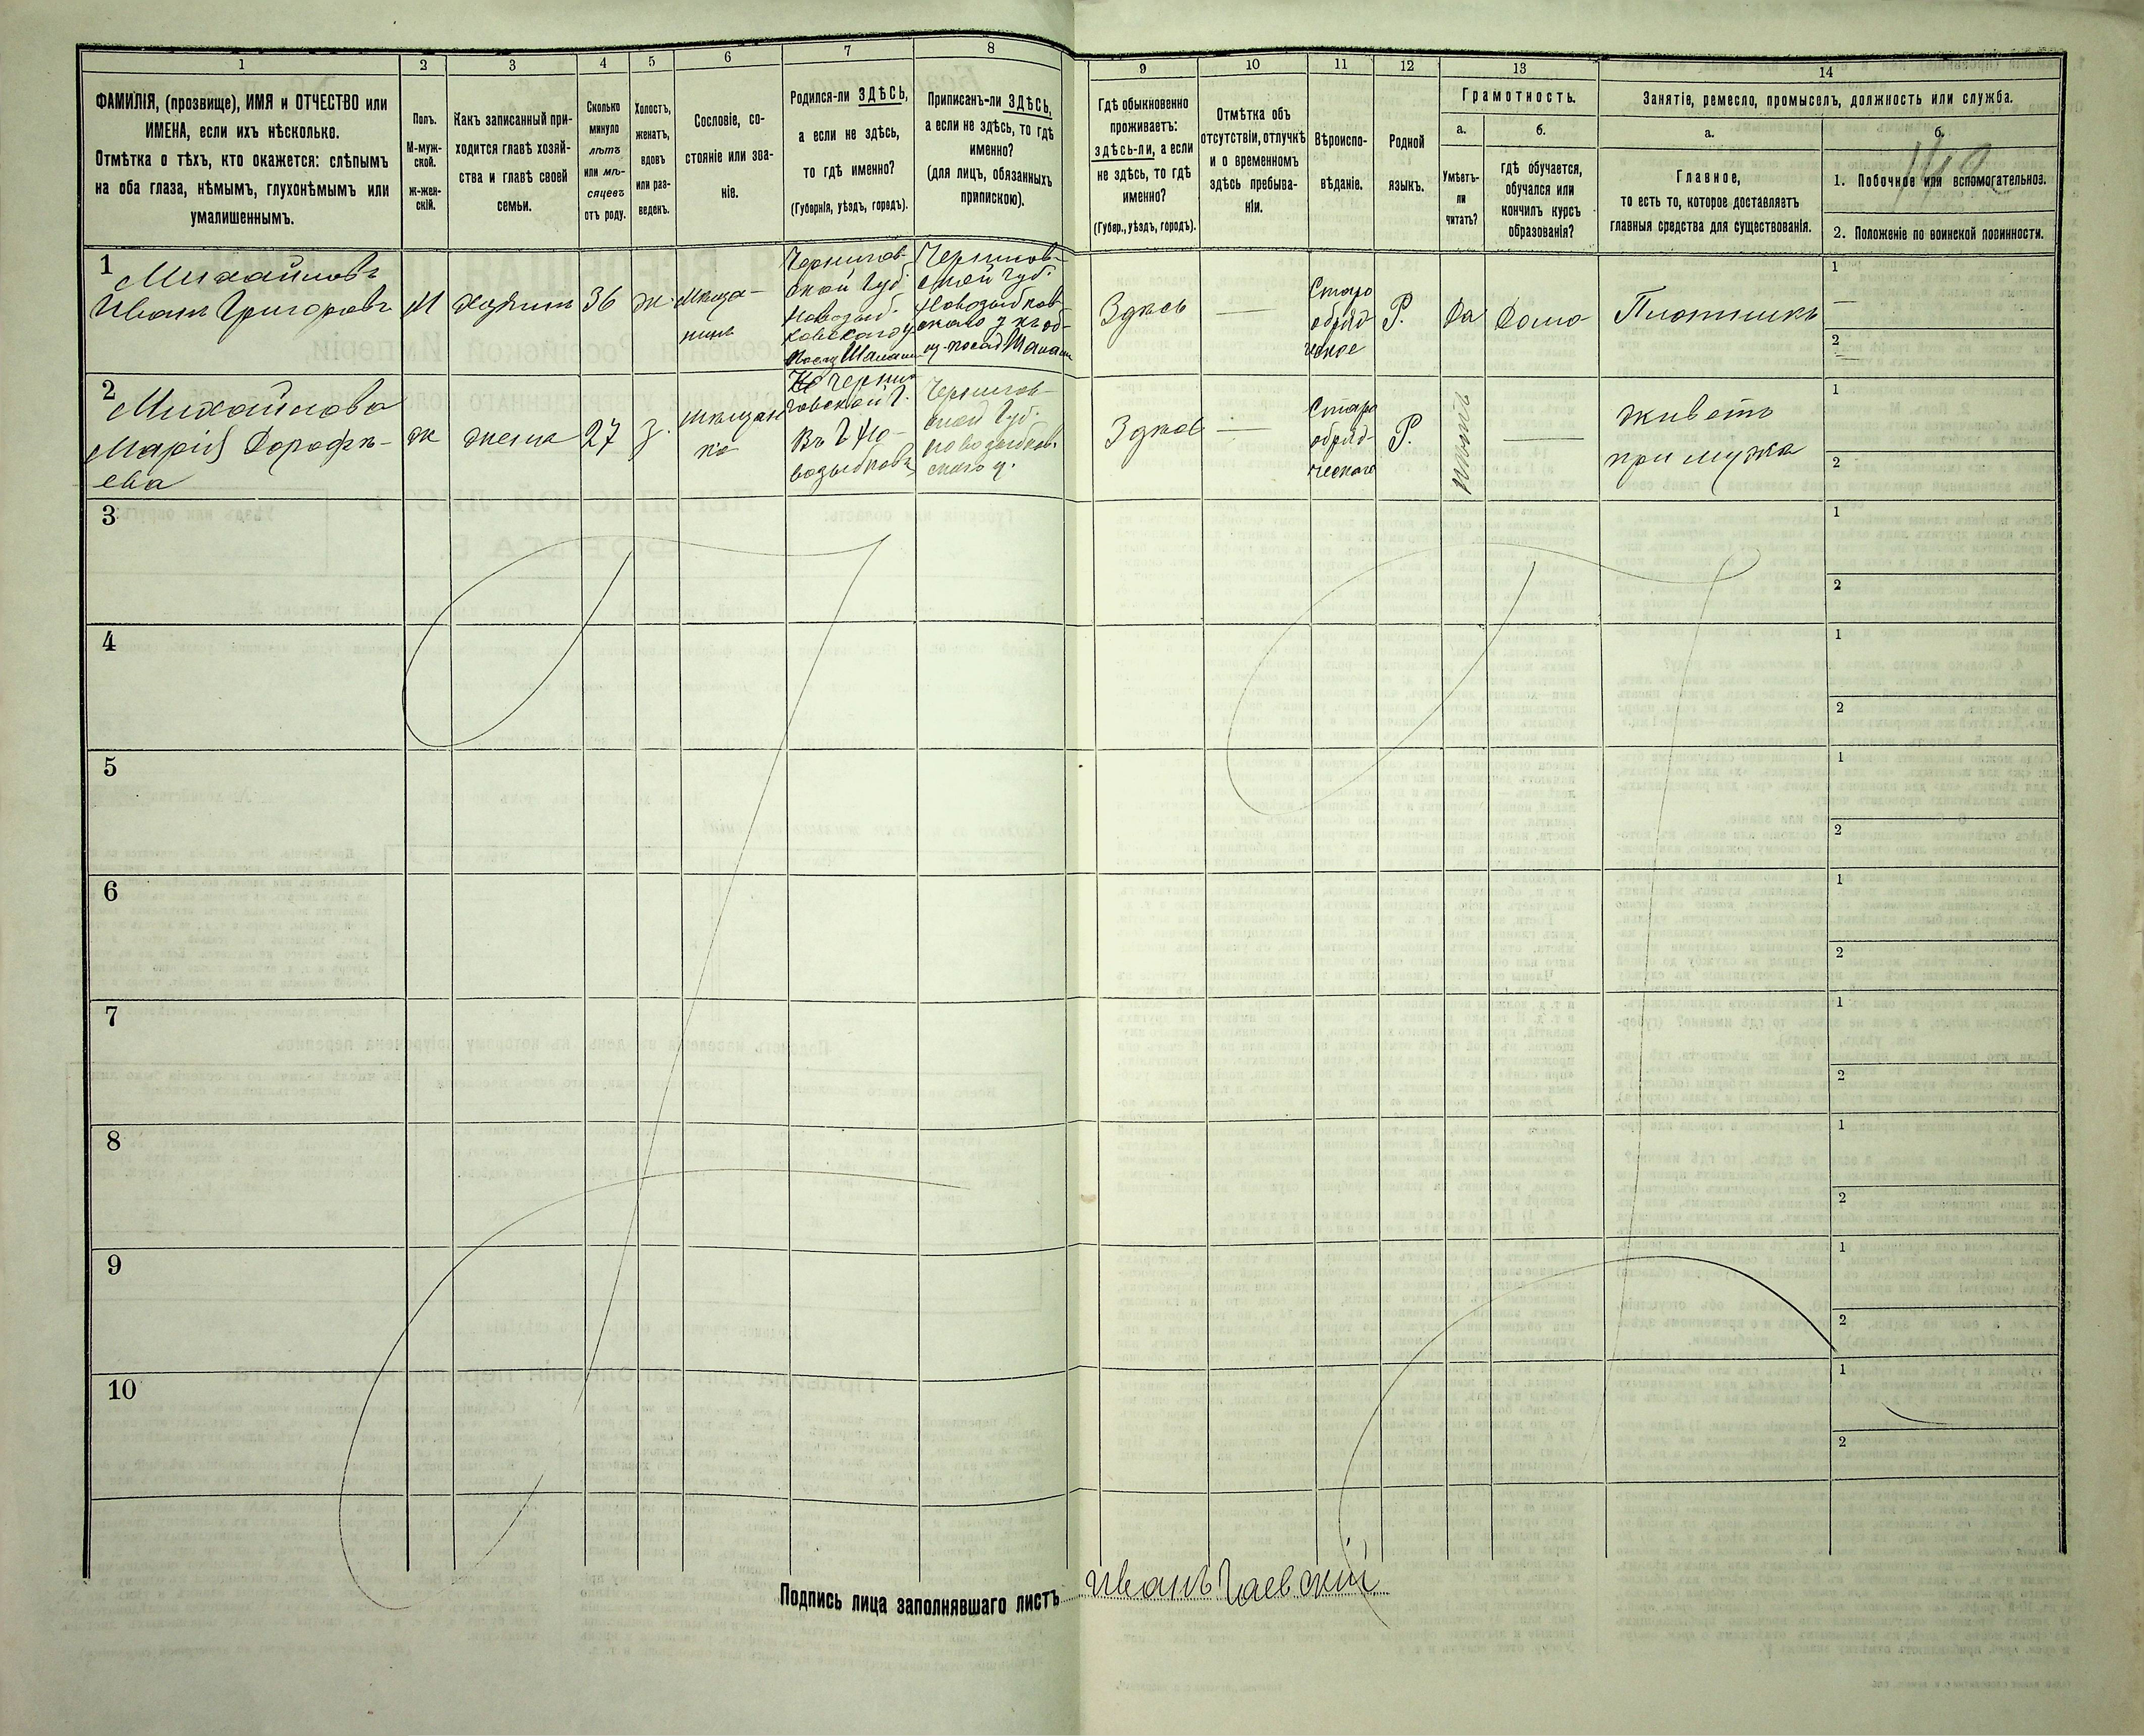 1 2 3 4 5 6 7 8 9 10 11 12 13 14
ФАМИЛІЯ, (прозвище), ИМЯ и ОТЧЕСТВО или
ИМЕНА, если ихъ нѣсколько.
Отмѣтка о тѣхъ, кто окажется: слѣпымъ
на оба глаза, нѣмымъ, глухонѣмымъ или
умалишеннымъ.
Полъ.
М-муж-
ской.
ж-жен-
скій.
Какъ записанный при-
ходится главѣ хозяй-
ства и главѣ своей
семьи.
Сколько
минуло
лѣтъ
или мѣ-
сяцевъ
отъ роду.
Холостъ,
женатъ,
вдовъ
или раз-
веденъ.
Сословіе, со-
стояніе или зва-
ніе.
Родился-ли ЗДѢСЬ,
а если не здѣсь,
то гдѣ именно?
(Губернія, уѣздъ, городъ).
Приписанъ-ли ЗДѢСЬ,
а если не здѣсь, то гдѣ
именно?
(для лицъ, обязанныхъ
припискою).
Гдѣ обыкновенно
проживаетъ:
здѣсь-ли, а если
не здѣсь, то гдѣ
именно?
(Губер., уѣздъ, городъ).
Отмѣтка объ
отсутствіи, отлучкѣ
и о временномъ
здѣсь пребыва-
ніи.
Вѣроиспо-
вѣданіе.
Родной
языкъ.
Грамотность.
а.
Умѣетъ-
ли
читать?
б.
гдѣ обучается,
обучался или
кончилъ курсъ
образованія?
Занятіе, ремесло, промыселъ, должность или служба.
а.
Главное,
то есть то, которое доставляетъ
главныя средства для существованія.
б.
1. Побочное или вспомогательное.
2. Положеніе по воинской повинности.
1
Михайловъ
Иванъ Григоровъ
М
хозяинъ
36
ж.
Мѣща-
нинъ
Чернигов-
ской губ.
Новозыб-
ковского у
посад
Чернигов-
ской губ.
Новозыбков-
скаго у
посад
Здѣсь
—
Старо
обряд-
ческое
Р.
Да
Дома
Плотникъ
1
—
2
—
2
Михайлова
Марія Дорофѣ-
ева
ж
жена
27
З.
Мѣщан
ка
Черни-
говской г.
Въ г Но-
возыбковѣ
Чернигов-
ской губ.
новозыбков-
скаго у.
Здѣсь
—
Старо
обряд-
ческаго
Р.
нѣтъ
—
живетъ
при мужѣ
1
2
3
1
2
4
1
2
5
1
2
6
1
2
7
1
2
8
1
2
9
1
2
10
1
2
Подпись лица заполнявшаго листъ Иванъ Гаевскій